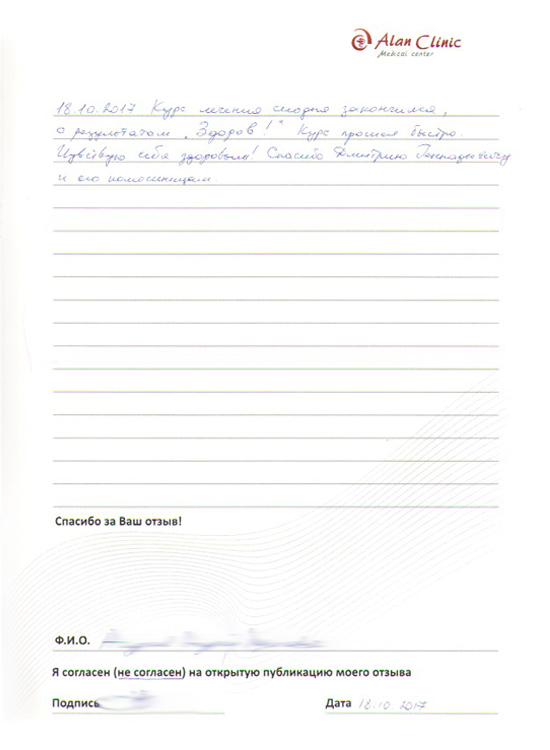 Alan Clinic
Medical center
18.10.2017 Курс лечения сегодня закончился,
с результатом „Здоров!“ Курс прошел быстро.
Чувствую себя здоровым! Спасибо Дмитрию Геннадьевичу
и его помощницам.
Спасибо за Ваш отзыв!
Ф.И.О.
Я согласен (не согласен) на открытую публикацию моего отзыва
Подпись
Дата 18.10.2017